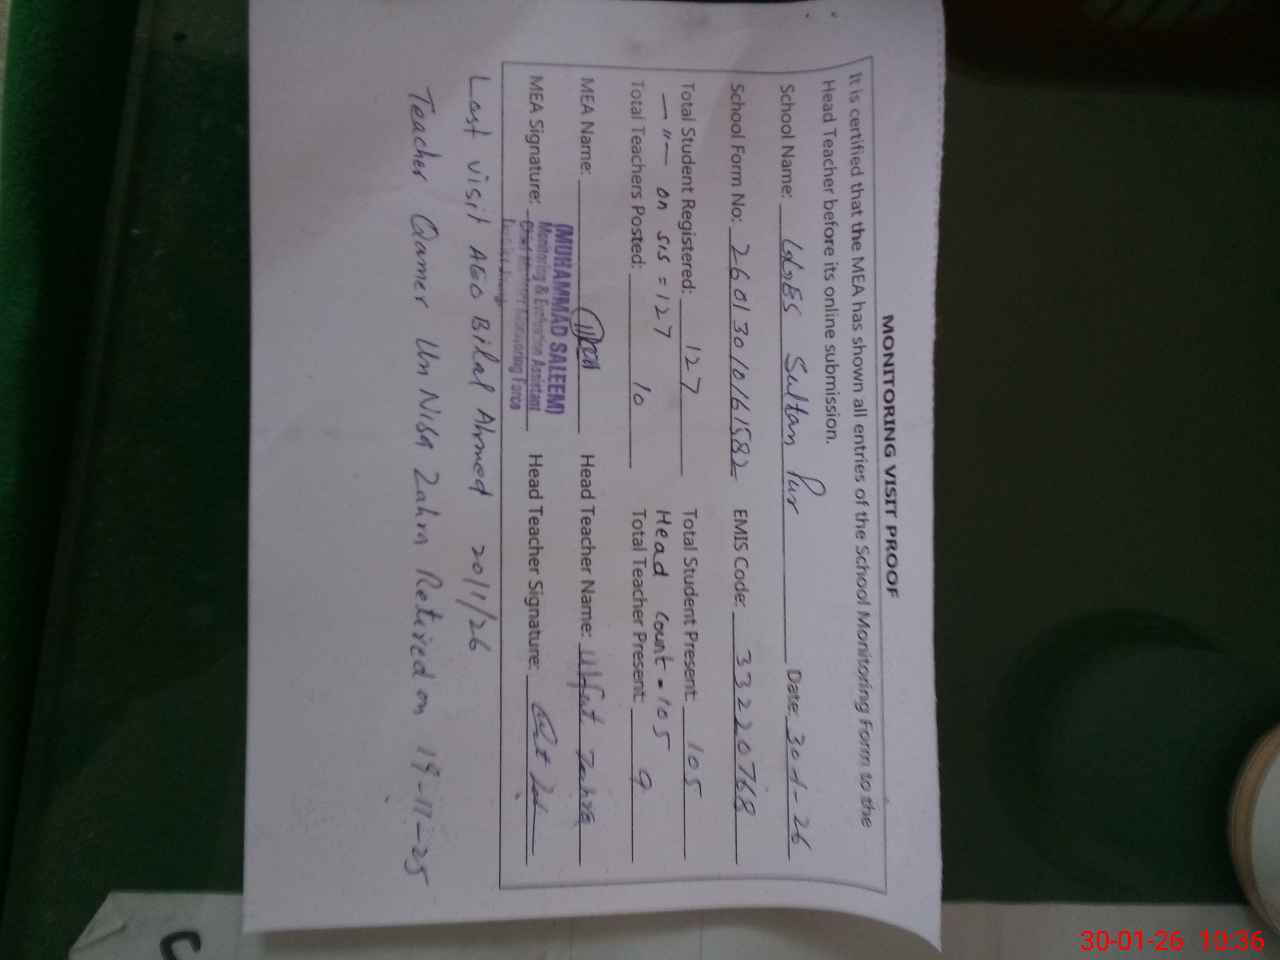 MONITORING VISIT PROOF
It is certified that the MEA has shown all entries of the School Monitoring Form to the
Head Teacher before its online submission.
School Name: GGES Sultan Pur Date: 30-1-26
School Form No: 26013010161582 EMIS Code: 33220768
Total Student Registered: 127 Total Student Present: 105
—〃— on SIS = 127 Head Count = 105
Total Teachers Posted: 10 Total Teacher Present: 9
MEA Name: Head Teacher Name: Ulfat Zahra
(MUHAMMAD SALEEM)
Monitoring & Evaluation Assistant
Monitoring Force
MEA Signature: Head Teacher Signature:
Last visit AEO Bilal Ahmed 20/1/26
Teacher Qamer Un Nisa Zahra Retired on 19-11-25
C
30-01-26 10:36